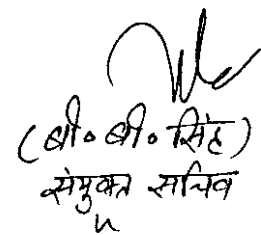 (बी॰ बी॰ सिंह)
संयुक्त सचिव